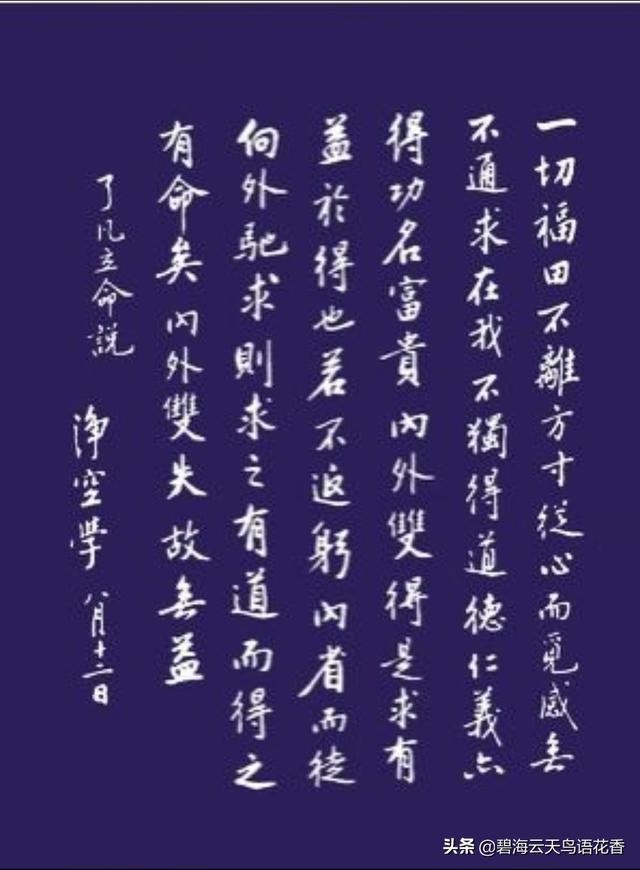 一切福田不離方寸從心而覓感无
不通求在我不獨得道德仁義亦
得功名富貴內外雙得是求有
益於得也若不返躬內省而徒
向外馳求則求之有道而得之
有命矣內外雙失故无益
了凡立命說
淨空學 八月十二日
头条 @碧海云天鸟语花香